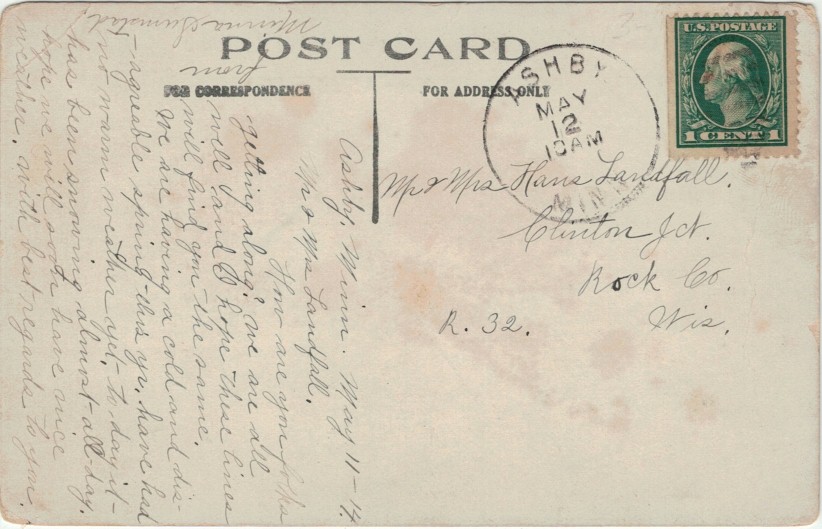 POST CARD
FOR CORRESPONDENCE
FOR ADDRESS ONLY
U.S. POSTAGE
1 CENT 1
ASHBY
MAY
12
10AM
MINN
Mr & Mrs Hans Landfall.
Clinton Jct.
Rock Co.
R. 32.
Wis.
Ashby, Minn. May 11-14.
Mr & Mrs Landfall.
How are you folks
getting along? We are all
well and I hope these lines
will find you the same.
We are having a cold and dis-
agreable spring this yr. have had
no warm weather yet, to day it
has been snowing almost all day.
hope we will soon have nice
weather. with best regards to you.
from
Minna